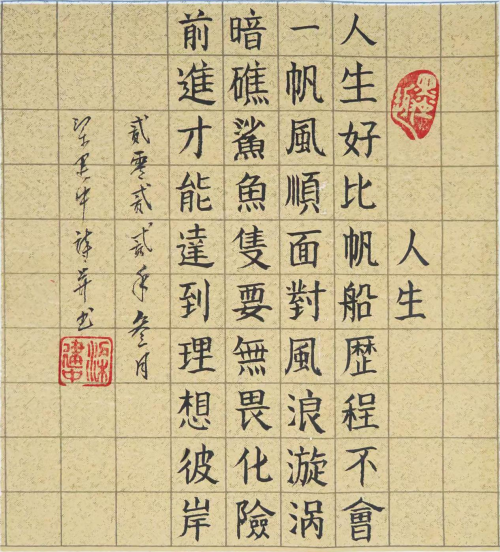 人生
人生好比帆船歴程不會
一帆風順面對風浪漩涡
暗礁鯊魚隻要無畏化險
前進才能達到理想彼岸
貳零貳貳年叁月
詩并书